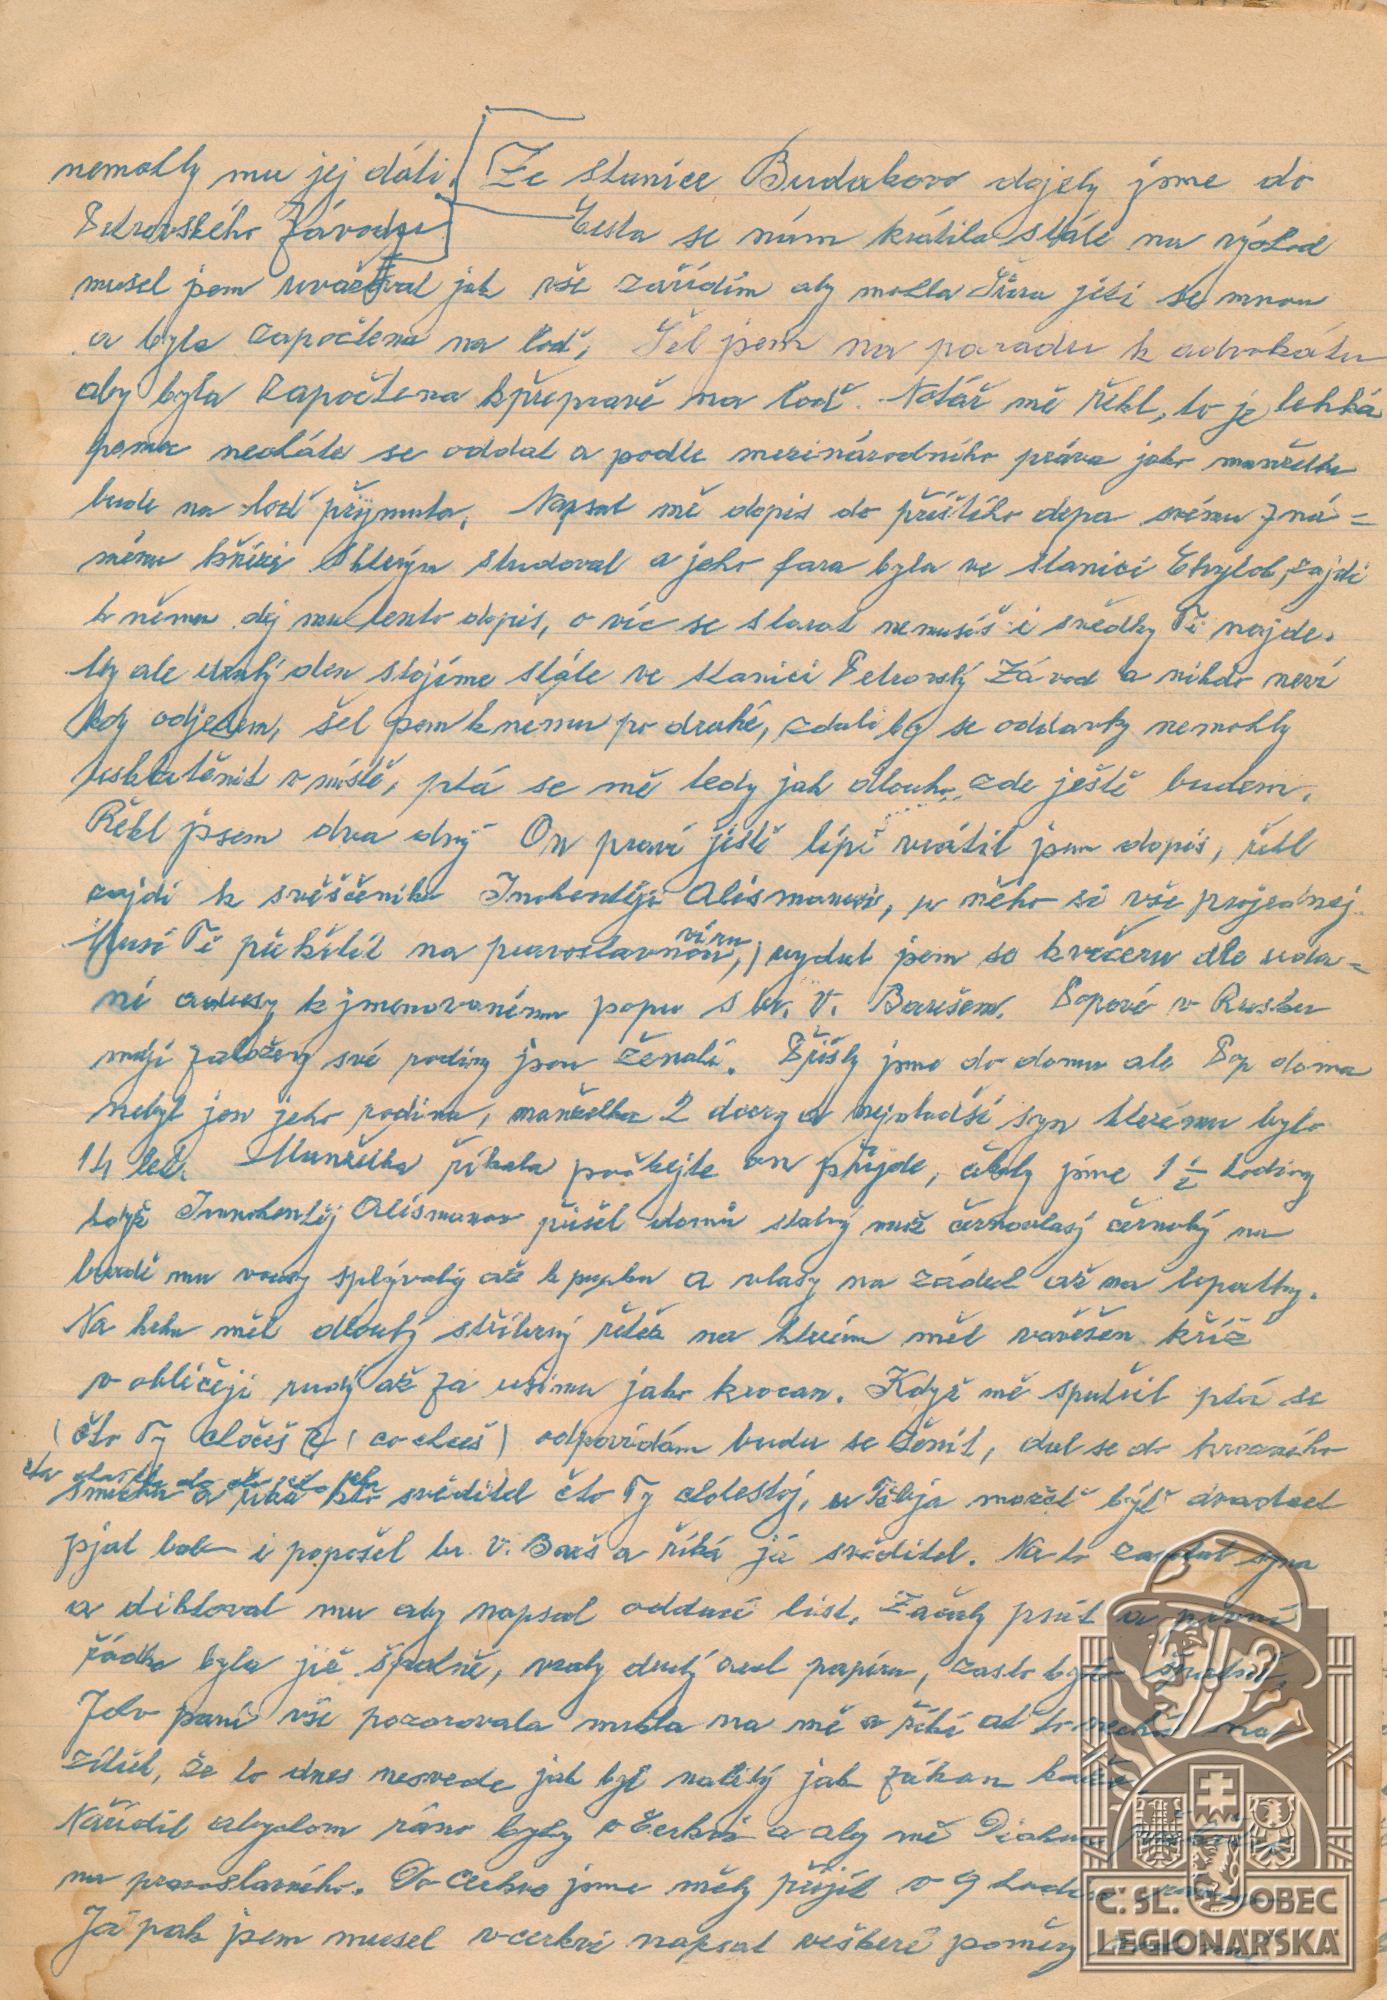 nemohly mu jej dáti. Ze stanice Budakovo dojely jme do
Petrovského Závodu Cesta se nám krátila stále na východ
musel jsem uvažoval jak vše zařídím aby mohla Šura jeti se mnou
a byla započtena na loď, Šel jsem na poradu k advokátu
aby byla započtena k přepravě na loď. Notář mě řekl, to je lehká
pomoc necháte se oddat a podle mezinárodního práva jako manželka
bude na loď přijmuta. Napsal mě dopis do příštího depa svému zná=
mému knězi s kterým studoval a jeho fara byla ve stanici zajdi
k němu dej mu tento dopis, o víc se starat nemusíš i svědky Ti najde.
My ale druhý den stojíme stále ve stanici Petrovský Závod a nikdo neví
kdy odjedem, šel jsem k nemu po druhé, zdali by se oddavky nemohly
uskutečnit v místě, ptá se mě tedy jak dlouho zde ještě budem.
Řekl jsem dva dny On praví ještě lépe vrátil jsem dopis, řekl
zajdi k svěščeniku Inokentěji Alismanovi, u něho si vše projednej.
Musí Ti překřtít na pravoslavnou víru, vydal jsem se kvečeru dle uda=
ní adresy k jmenovanému popu s br. V. Barešem. Popové v Rusku
mají založeny své rodiny jsou ženatí. Přišly jsme do domu ale Pop doma
nebyl jen jeho rodina, manželka 2 dcery a nejmladší syn kterému bylo
14 let. Manželka říkala počkejte on přijde, čkaly jsme 1 1/2 hodiny
když Innokentěj Alismanov přišel domů statný muž černovlasý černoký na
bradě mu vousy splývaly až k pupku a vlasy na zádech až na lopatky.
Na krku měl dlouhý stříbrný řetěz na kterém měl zavěšen kříž
v obličeji rudý až za ušima jako krocan. Když mě spatřil ptá se
(što Ty chočeš (co chceš) odpovídám budu se ženit, dal se do hrozného
smíchu a říká kto svěditel što Ty cholostoj, u Těbja možeť býť dvadcet
pjat bab i popošel br. V. Bareš a říká já svěditel. Na to zavolal syna
a diktoval mu aby napsal oddací list. Začaly psát a první
řádka byla již špatně, vzaly druhý arch papíru, zasto bylo špatně,
Jeho paní vše pozorovala mrkla na mě a říká ať to nechá na
zítřek, že to dnes nesvede jak byl nalitý jak zákon káže
Nařídil abychom ráno byly v Cerkvi a aby mě Diakon
na pravoslavného. Do cerkve jsme měly přijít v 9 hodin
Já pak jsem musel v cerkvi napsat veškeré poměry
Č. SL. OBEC
LEGIONÁŘSKÁ